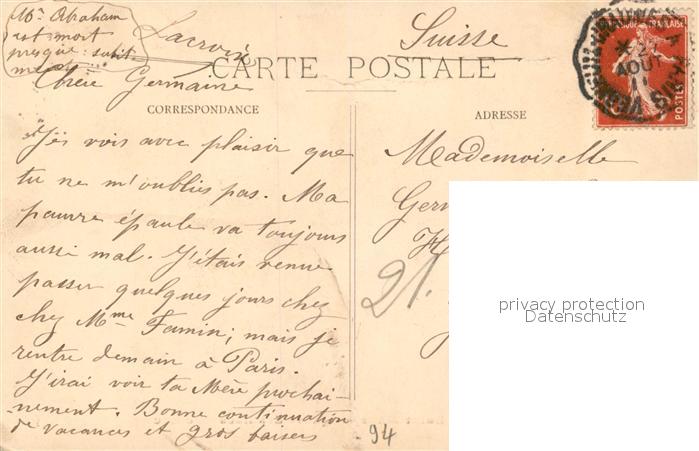 Mr Abraham
est mort
presque subit
Lacroix
Suisse
CARTE POSTALE
Chère Germaine
CORRESPONDANCE
ADRESSE
Je vois avec plaisir que
tu ne m'oublies pas. Ma
pauvre épaule va toujours
aussi mal. J'étais venue
passer quelques jours chez
chez Mme Famin; mais je
rentre demain à Paris.
J'irai voir ta Mère prochai-
nement. Bonne continuation
de vacances et gros baisers
94
Mademoiselle
Ger
21.
AOUT
POSTES
privacy protection
Datenschutz